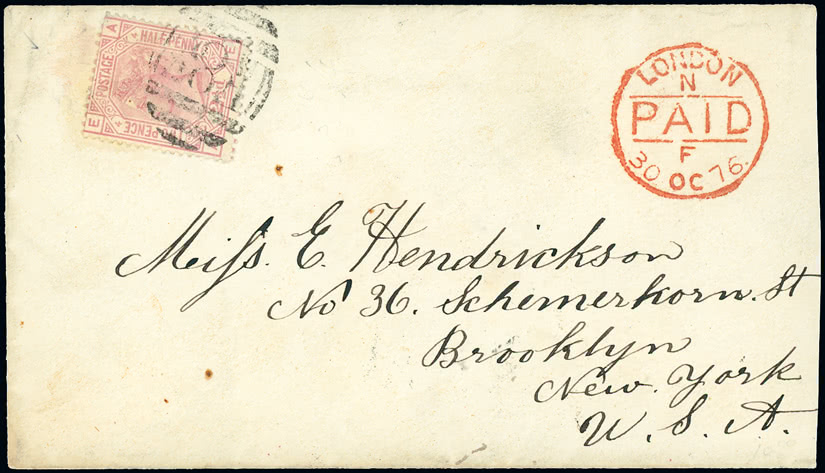 POSTAGE
HALFPENNY
PENCE
A
E
E
4
4
LONDON
N
PAID
F
30 OC 76
Miſs. E. Hendrickson
No 36. Schemerkorn. St
Brooklyn
New. York
U. S. A.